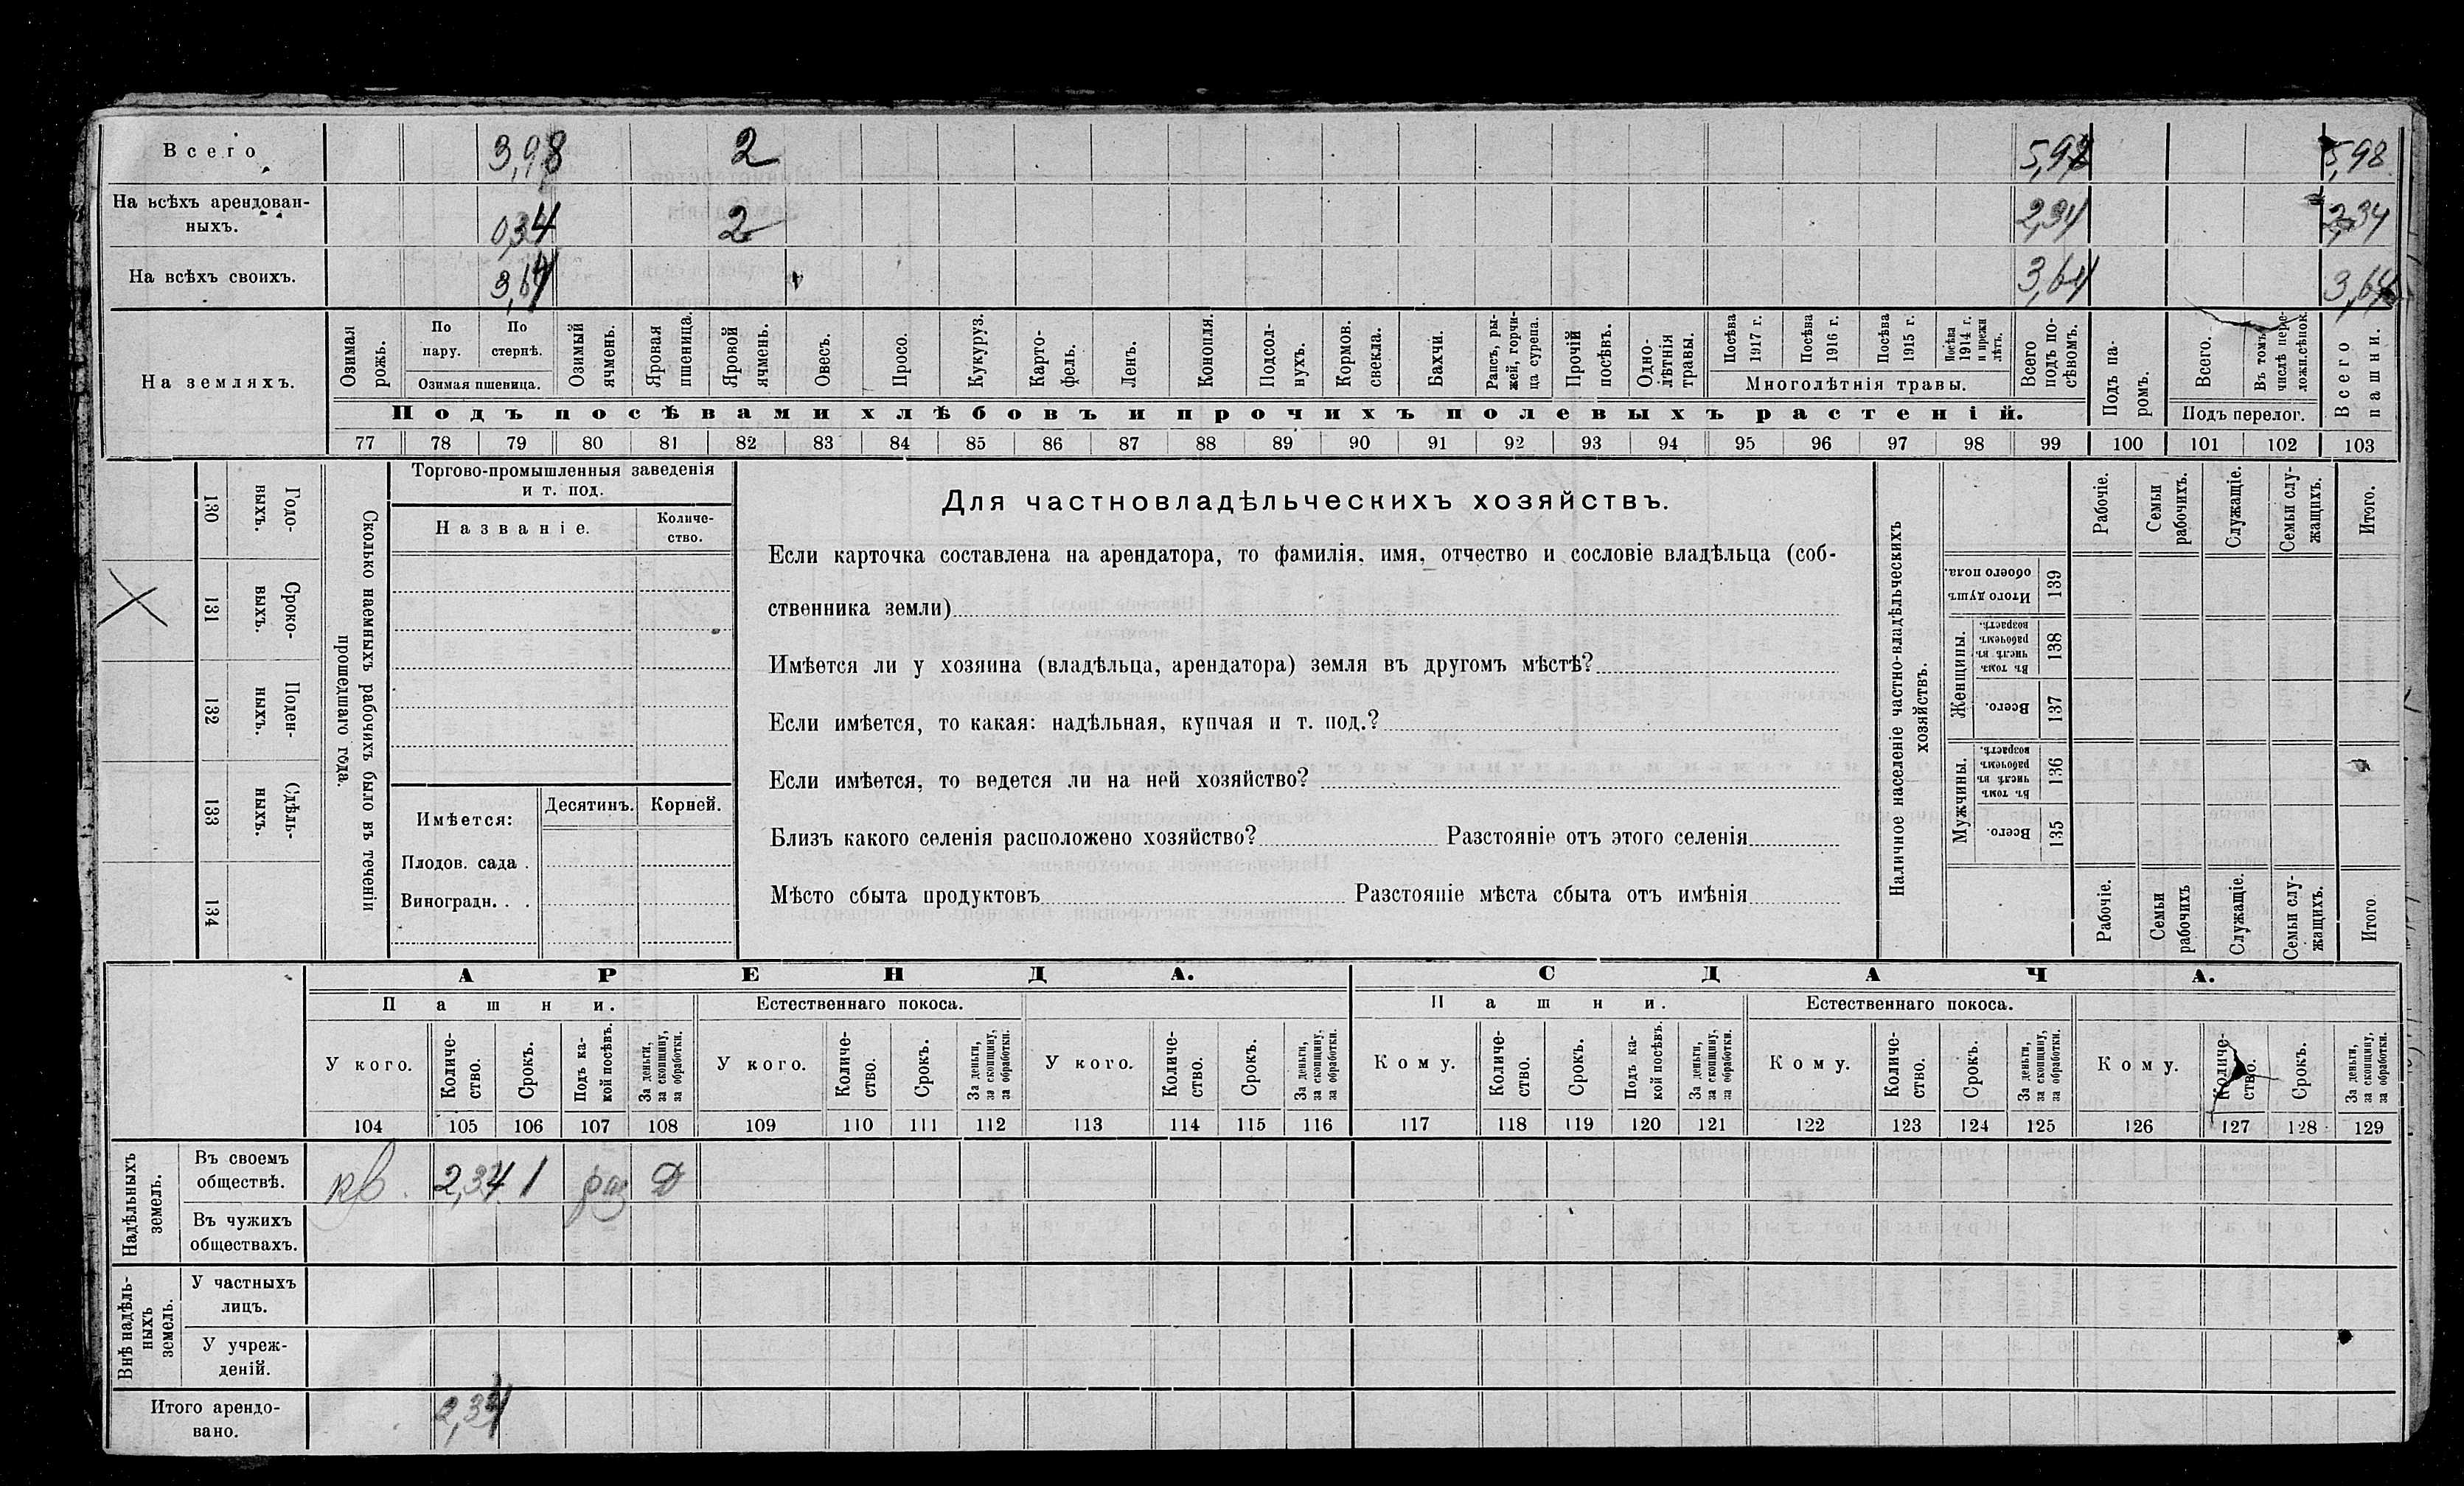 Всего 3,98 2 5,98 5,98
На всѣхъ арендован-
ныхъ. 0,34 2 2,34 2,34
На всѣхъ своихъ. 3,64 3,64 3,64
На земляхъ.
Озимая рожь.
По пару.
По стернѣ.
Озимая пшеница.
Озимый ячмень.
Яровая пшеница.
Яровой ячмень.
Овесъ.
Просо.
Кукуруз.
Карто-
фель.
Ленъ.
Конопля.
Подсол-
нухъ.
Кормов.
свекла.
Бахчи.
Рапсъ, ры-
жей, горчи-
ца сурепа.
Прочій
посѣвъ.
Одно-
лѣтнія
травы.
Посѣва
1917 г.
Посѣва
1916 г.
Посѣва
1915 г.
Посѣва
1914 г.
и прежн
лѣтъ.
Многолѣтнія травы.
Всего
подъ по-
сѣвомъ.
Подъ посѣвами хлѣбовъ и прочихъ полевыхъ растеній.
Подъ па-
ромъ.
Всего.
Въ томъ
числѣ пере-
ложн.сѣнок.
Подъ перелог.
Всего
пашни.
77 78 79 80 81 82 83 84 85 86 87 88 89 90 91 92 93 94 95 96 97 98 99 100 101 102 103
130 Годо-
выхъ.
131 Сроко-
выхъ.
132 Поден-
ныхъ.
133 Сдѣль-
ныхъ.
134
Сколько наемныхъ рабочихъ было въ теченіи
прошедшаго года.
Торгово-промышленныя заведенія
и т. под.
Названіе.
Количе-
ство.
Имѣется:
Десятинъ. Корней.
Плодов. сада .
Виноградн. . .
Для частновладѣльческихъ хозяйствъ.
Если карточка составлена на арендатора, то фамилія, имя, отчество и сословіе владѣльца (соб-
ственника земли)
Имѣется ли у хозяина (владѣльца, арендатора) земля въ другомъ мѣстѣ?
Если имѣется, то какая: надѣльная, купчая и т. под.?
Если имѣется, то ведется ли на ней хозяйство?
Близъ какого селенія расположено хозяйство? Разстояніе отъ этого селенія
Мѣсто сбыта продуктовъ Разстояніе мѣста сбыта отъ имѣнія
Наличное населеніе частно-владѣльческихъ
хозяйствъ.
Рабочіе.
Семьи
рабочихъ.
Служащіе.
Семьи слу-
жащихъ.
Итого.
Итого душъ
обоего пола.
139
Женщины.
Въ томъ
числѣ въ
рабочемъ
возрастѣ.
138
Всего.
137
Мужчины.
Въ томъ
числѣ въ
рабочемъ
возрастѣ.
136
Всего.
135
Рабочіе.
Семьи
рабочихъ
Служащіе.
Семьи слу-
жащихъ.
Итого.
АРЕНДА. СДАЧА.
Пашни. Естественнаго покоса. Пашни. Естественнаго покоса.
У кого.
Количе-
ство.
Срокъ.
Подъ ка-
кой посѣвъ.
За деньги,
за скопщину,
за обработки.
У кого.
Количе-
ство.
Срокъ.
За деньги,
за скопщину,
за обработки.
У кого.
Количе-
ство.
Срокъ.
За деньги,
за скопщину,
за обработки.
Кому.
Количе-
ство.
Срокъ.
Подъ ка-
кой посѣвъ.
За деньги,
за скопщину,
за обработки.
Кому.
Количе-
ство.
Срокъ.
За деньги,
за скопщину,
за обработки.
Кому.
Количе-
ство.
Срокъ.
За деньги,
за скопщину,
за обработки.
104 105 106 107 108 109 110 111 112 113 114 115 116 117 118 119 120 121 122 123 124 125 126 127 128 129
Надѣльныхъ
земель.
Въ своемъ
обществѣ. кв. 2,34 1 Д
Въ чужихъ
обществахъ.
Внѣ надѣль-
ныхъ
земель.
У частныхъ
лицъ.
У учреж-
деній.
Итого арендо-
вано. 2,34